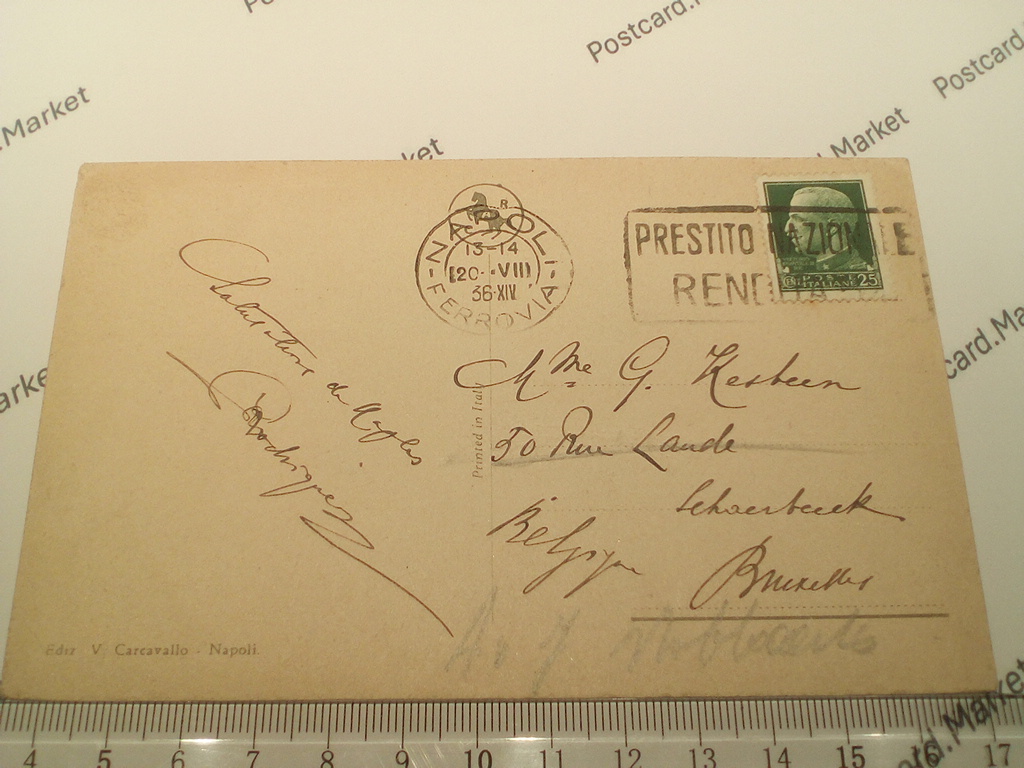 Postcard.Market
Postcard.Market
Postcard.Market
NAPOLI
FERROVIA
13-14
20 · VIII
36·XIV
R
PRESTITO NAZIONALE
RENDITA
POSTE
ITALIANE 25
Salutations de Naples
Rodriguez
Printed in Ital
Mme G.
50 Rue Laude
Schaerbeek
Belgique
Bruxelles
Ediz V. Carcavallo - Napoli.
4 5 6 7 8 9 10 11 12 13 14 15 16 17